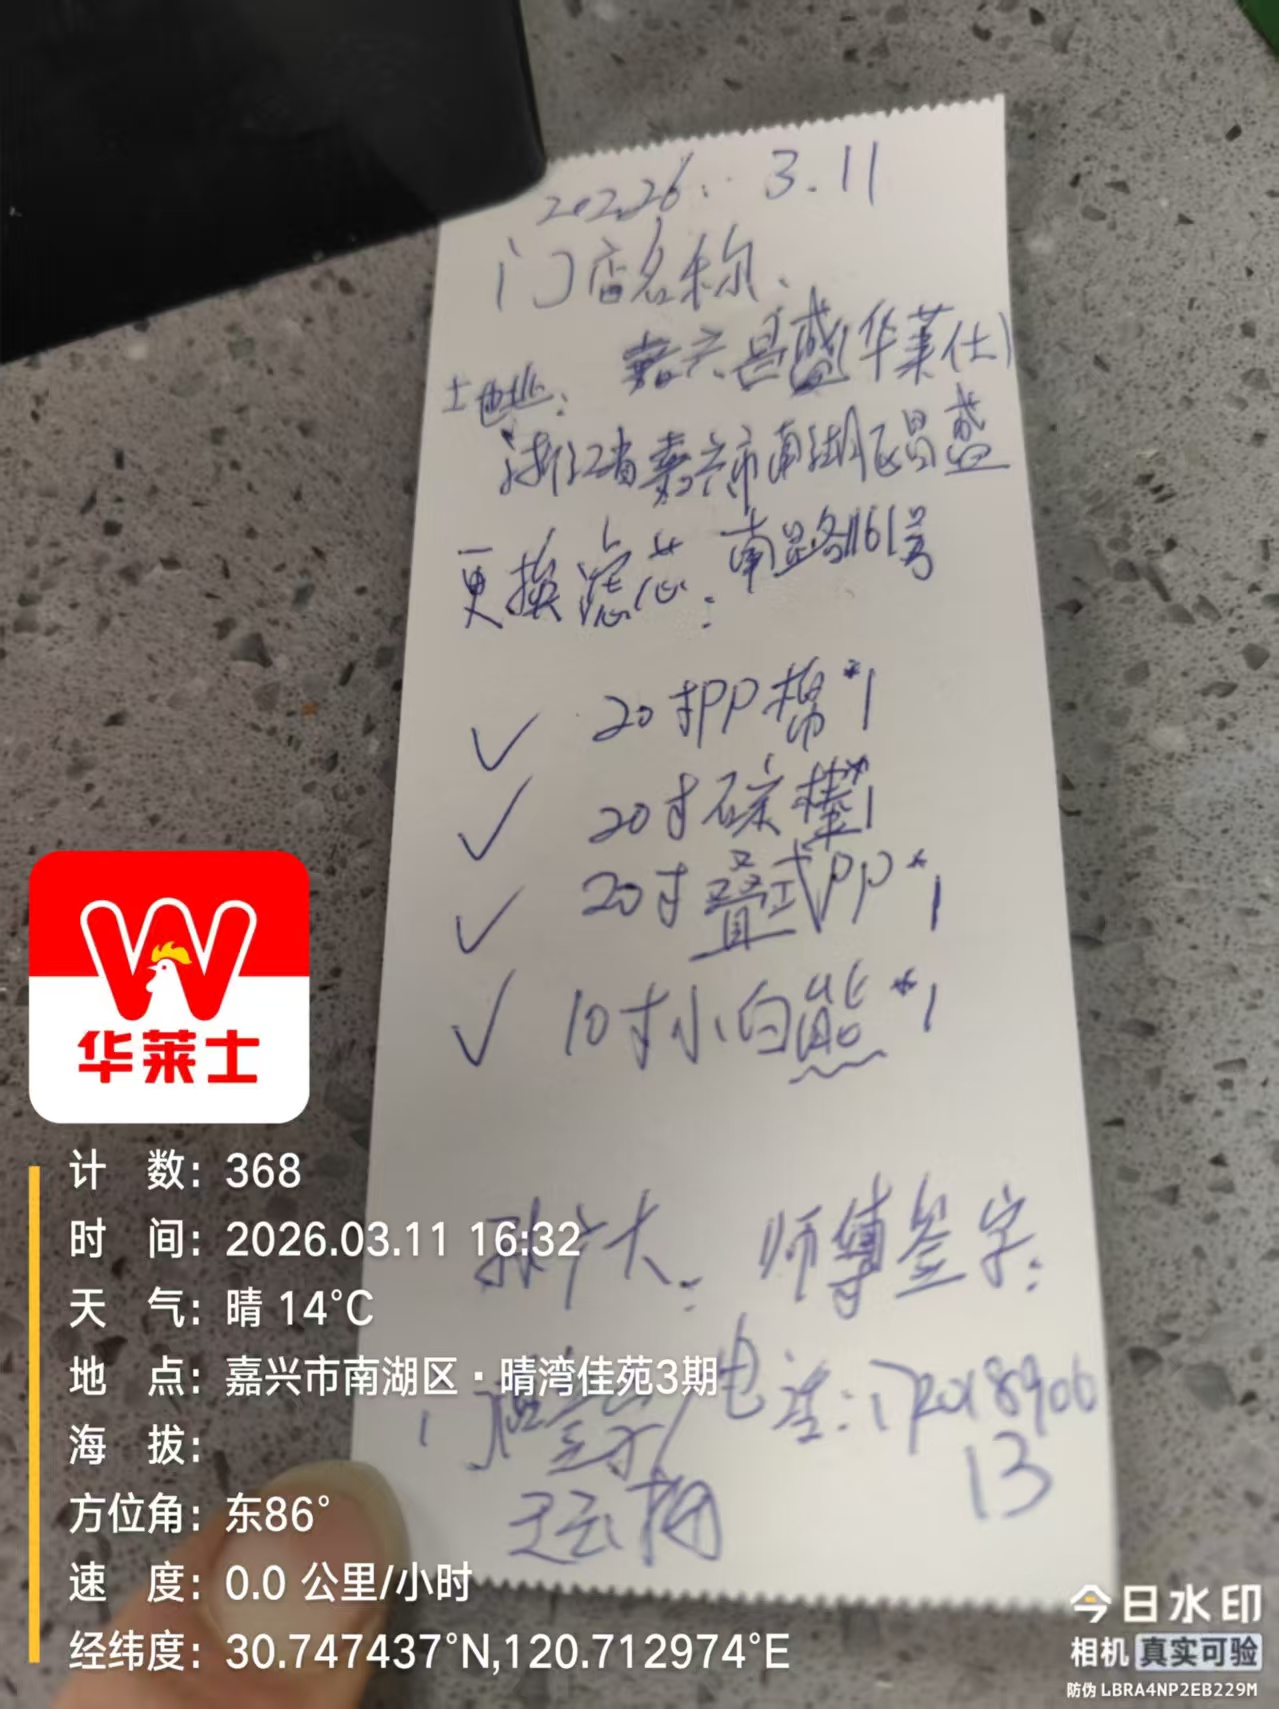 2026. 3.11
门店名称:
嘉兴昌盛(华莱仕)
地址:
浙江省嘉兴市南湖区昌盛
南路1161号
更换滤芯:
✓ 20寸PP棉*1
✓ 20寸碳棒*1
✓ 20寸叠式PP*1
✓ 10寸小白熊*1
师傅签字:
电话:
13
华莱士
计 数: 368
时 间: 2026.03.11 16:32
天 气: 晴 14°C
地 点: 嘉兴市南湖区·晴湾佳苑3期
海 拔:
方位角: 东86°
速 度: 0.0 公里/小时
经纬度: 30.747437°N,120.712974°E
今日水印
相机 真实可验
防伪 LBRA4NP2EB229M